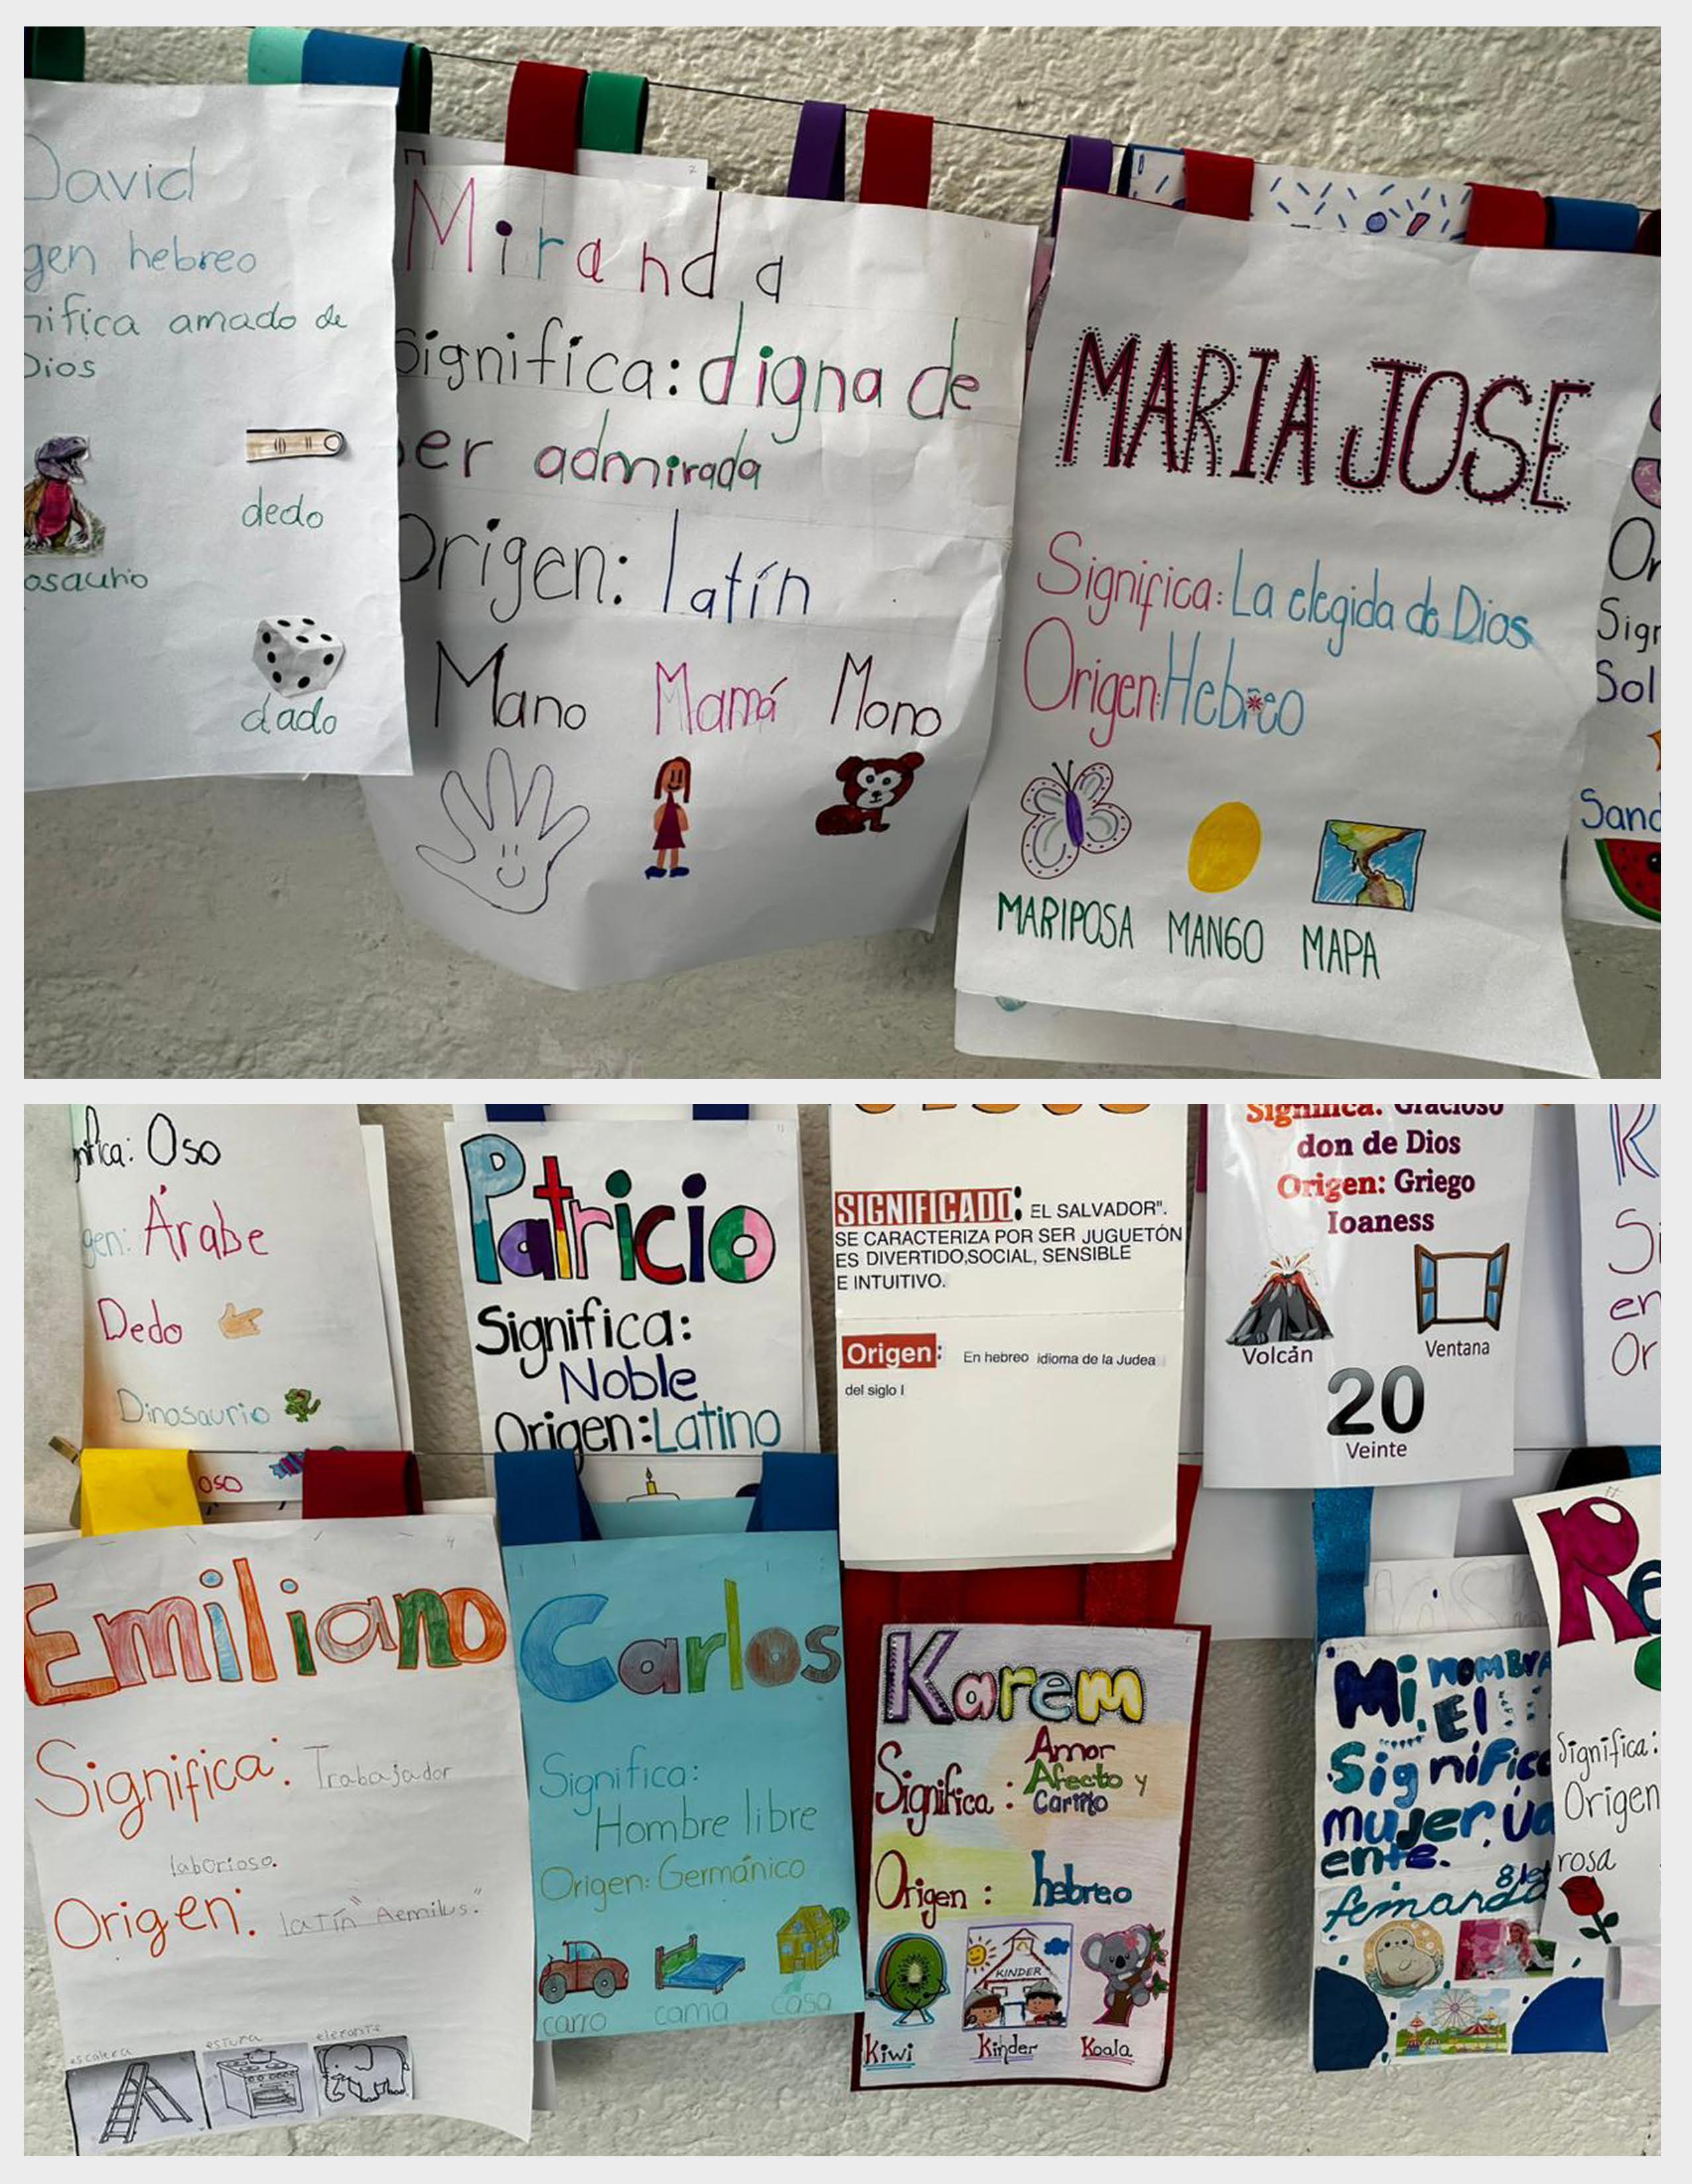 David
gen hebreo
nifica amado de
Dios
dedo
osaurio
dado
Miranda
Significa: digna de
ser admirada
Origen: latín
Mano Mamá Mono
MARIA JOSE
Significa: La elegida de Dios
Origen: Hebreo
MARIPOSA MANGO MAPA
Or
Sign
Sol
Sand
nifica: Oso
gen: Árabe
Dedo
Dinosaurio
oso
Patricio
Significa:
Noble
Origen: Latino
SIGNIFICADO: EL SALVADOR".
SE CARACTERIZA POR SER JUGUETÓN
ES DIVERTIDO,SOCIAL, SENSIBLE
E INTUITIVO.
Origen: En hebreo idioma de la Judea
del siglo I
Significa: Gracioso
don de Dios
Origen: Griego
Ioaness
Volcán
Ventana
20
Veinte
R
Si
en
Or
Emiliano
Significa: Trabajador
laborioso.
Origen: latín "Aemilus."
escalera estufa elefante
Carlos
Significa:
Hombre libre
Origen: Germánico
carro cama casa
Karem
Significa: Amor
Afecto y
Cariño
Origen: hebreo
KINDER
Kiwi Kinder Koala
Mi nombre
El
Significa
mujer va
ente.
8 let
fernanda
Re
Significa:
Origen
rosa